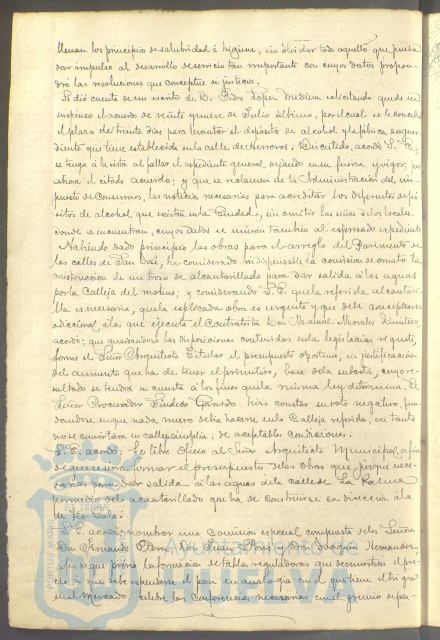 llenan los principios de salubridad é higiene, sin olvidar todo aquello que pueda
dar impulso al desarrollo de servicio tan importante con cuyos datos propon-
drá las resoluciones que conceptue de justicia.
Se dió cuenta de un escrito de D. Pedro Lopez Medina solicitando quede en
suspenso el acuerdo de veinte y nueve de Julio último, por el cual se le concede
el plazo de treinta dias para levantar el depósito de alcohol y la fábrica de aguar-
diente que tiene establecida en la calle de Herreros. Discutido, acordó S. E.
se tenga á la vista al fallar el espediente general dejando en su fuerza y vigor por
ahora el citado acuerdo; y que se reclamen de la Administracion del im-
puesto de Consumos, las noticias necesarias para acreditar los diferentes depó-
sitos de alcohol, que existen en la Ciudad, sin omitir las señas de los locales
donde se encuentran, cuyos datos se unirán tambien al espresado espediente
Habiendo dado principio las obras para el arreglo del Pavimento de
las calles de San José, ha considerado indispensable la comision de ornato la
construccion de un trozo de alcantarillado para dar salida á las aguas
por la Calleja del molino; y considerando S. E. que la referida alcantari-
lla es necesaria, que la esplicada obra es urgente y que debe conceptuarse
adicional á las que ejecuta el Contratista Don Manuel Morales Quintero,
acordó: que guardandose las disposiciones contenidas en la legislacion vigente,
forme el Señor Arquitecto Titular el presupuesto oportuno, en justificacion
del aumento que ha de tener el primitivo, base de la subasta, cuyo re-
sultado se tendrá en cuenta á los fines que la misma ley determina. El
Señor Procurador Síndico Garrido hizo constar su voto negativo, fun-
dandose en que nada nuevo debia hacerse en la Calleja referida, en tanto
no se convirtiera en calle amplia, de aceptables condiciones.
S. E. acordó: Se libre oficio al Señor Arquitecto Municipal, á fin
de que se sirva formar el presupuesto de las obras que juzgue nece-
sarias para dar salida á las aguas de la calle de La Palma
por medio del alcantarillado que ha de construirse en direccion á la
de
S. E. acordó; nombrar una Comision especial compuesta de los Señores
Don Fernando Don Juan Don Joaquin Hernandez,
á fin de que prévia la formacion de tablas reguladoras que demuestren el pre-
cio á que debe espenderse el pan en analogia con el que tiene el trigo
en el Mercado, celebre las conferencias necesarias con el gremio de pa-